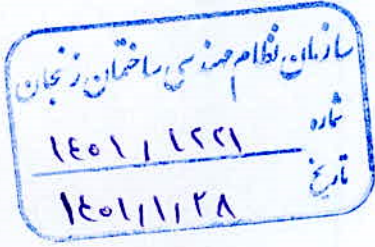 سازمان نظام مهندسی ساختمان زنجان
شماره ۱۴۰۱ / ۱۲۲۱
تاریخ ۱۴۰۱/۱/۲۸